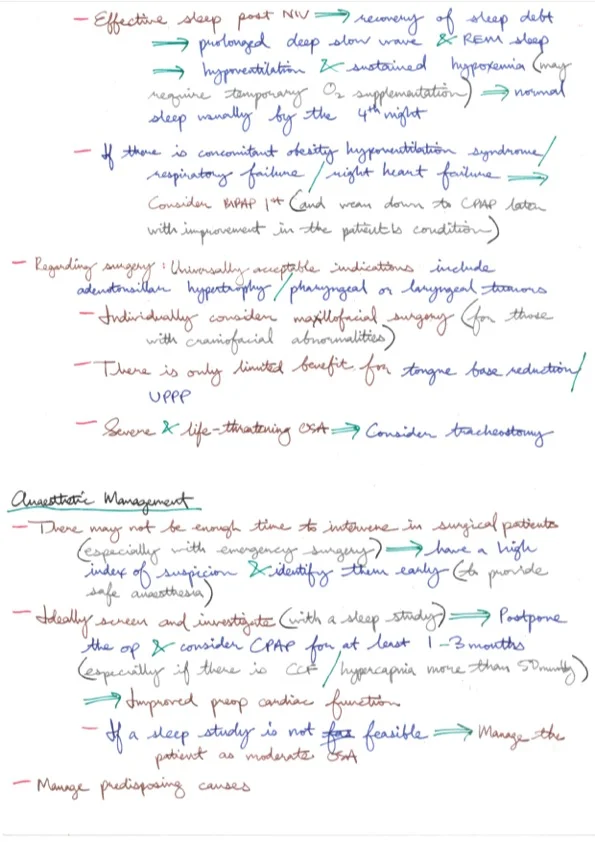 - Effective sleep post NIV ⟹ recovery of sleep debt
⟹ prolonged deep slow wave & REM sleep
⟹ hypoventilation & sustained hypoxemia (may
require temporary O2 supplementation) ⟹ normal
sleep usually by the 4th night
- If there is concomitant obesity hypoventilation syndrome/
respiratory failure / right heart failure ⟹
Consider BiPAP 1st (and wean down to CPAP later
with improvement in the patient's condition)
- Regarding surgery: Universally acceptable indications include
adenotonsillar hypertrophy / pharyngeal or laryngeal tumors
- Individually consider maxillofacial surgery (for those
with craniofacial abnormalities)
- There is only limited benefit for tongue base reduction/
UPPP
- Severe & life-threatening OSA ⟹ Consider tracheostomy
Anaesthetic Management
- There may not be enough time to intervene in surgical patients
(especially with emergency surgery) ⟹ have a high
index of suspicion & identify them early (to provide
safe anaesthesia)
- Ideally screen and investigate (with a sleep study) ⟹ Postpone
the op & consider CPAP for at least 1-3 months
(especially if there is CCF / hypercapnia more than 50mmHg)
⟹ Improved preop cardiac function
- If a sleep study is not feasible ⟹ Manage the
patient as moderate OSA
- Manage predisposing causes